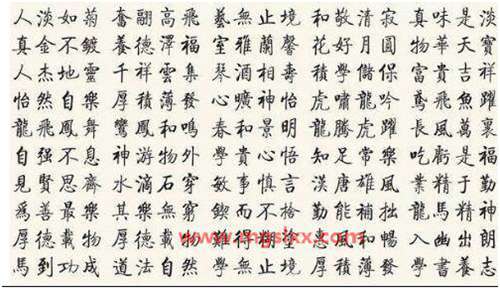 人淡如菊 奮翮高飛 藝無止境 和敬清寂 真味是淡
真金不鍍 養德澤福 室雅蘭馨 花好月圓 物華天寶
人杰地靈 千祥雲集 琴酒相壽 積學儲保 富貴吉祥
怡然自樂 厚積薄發 心曠神怡 虎嘯龍吟 鳶飛魚躍
龍飛鳳舞 鸞鳳和鳴 春和景明 龍騰虎躍 長風萬裏
自强不息 神游物外 學貴心悟 知足常樂 吃虧是福
見賢思齊 水滴石穿 敏事慎言 漢唐雄風 業精于勤
爲善最樂 其樂無窮 鍥而不捨 勤能補拙 龍馬精神
厚德載物 厚德載物 惠風和暢 入幽出朗
馬到功成 道法自然 學無止境 厚積薄發 學書養志